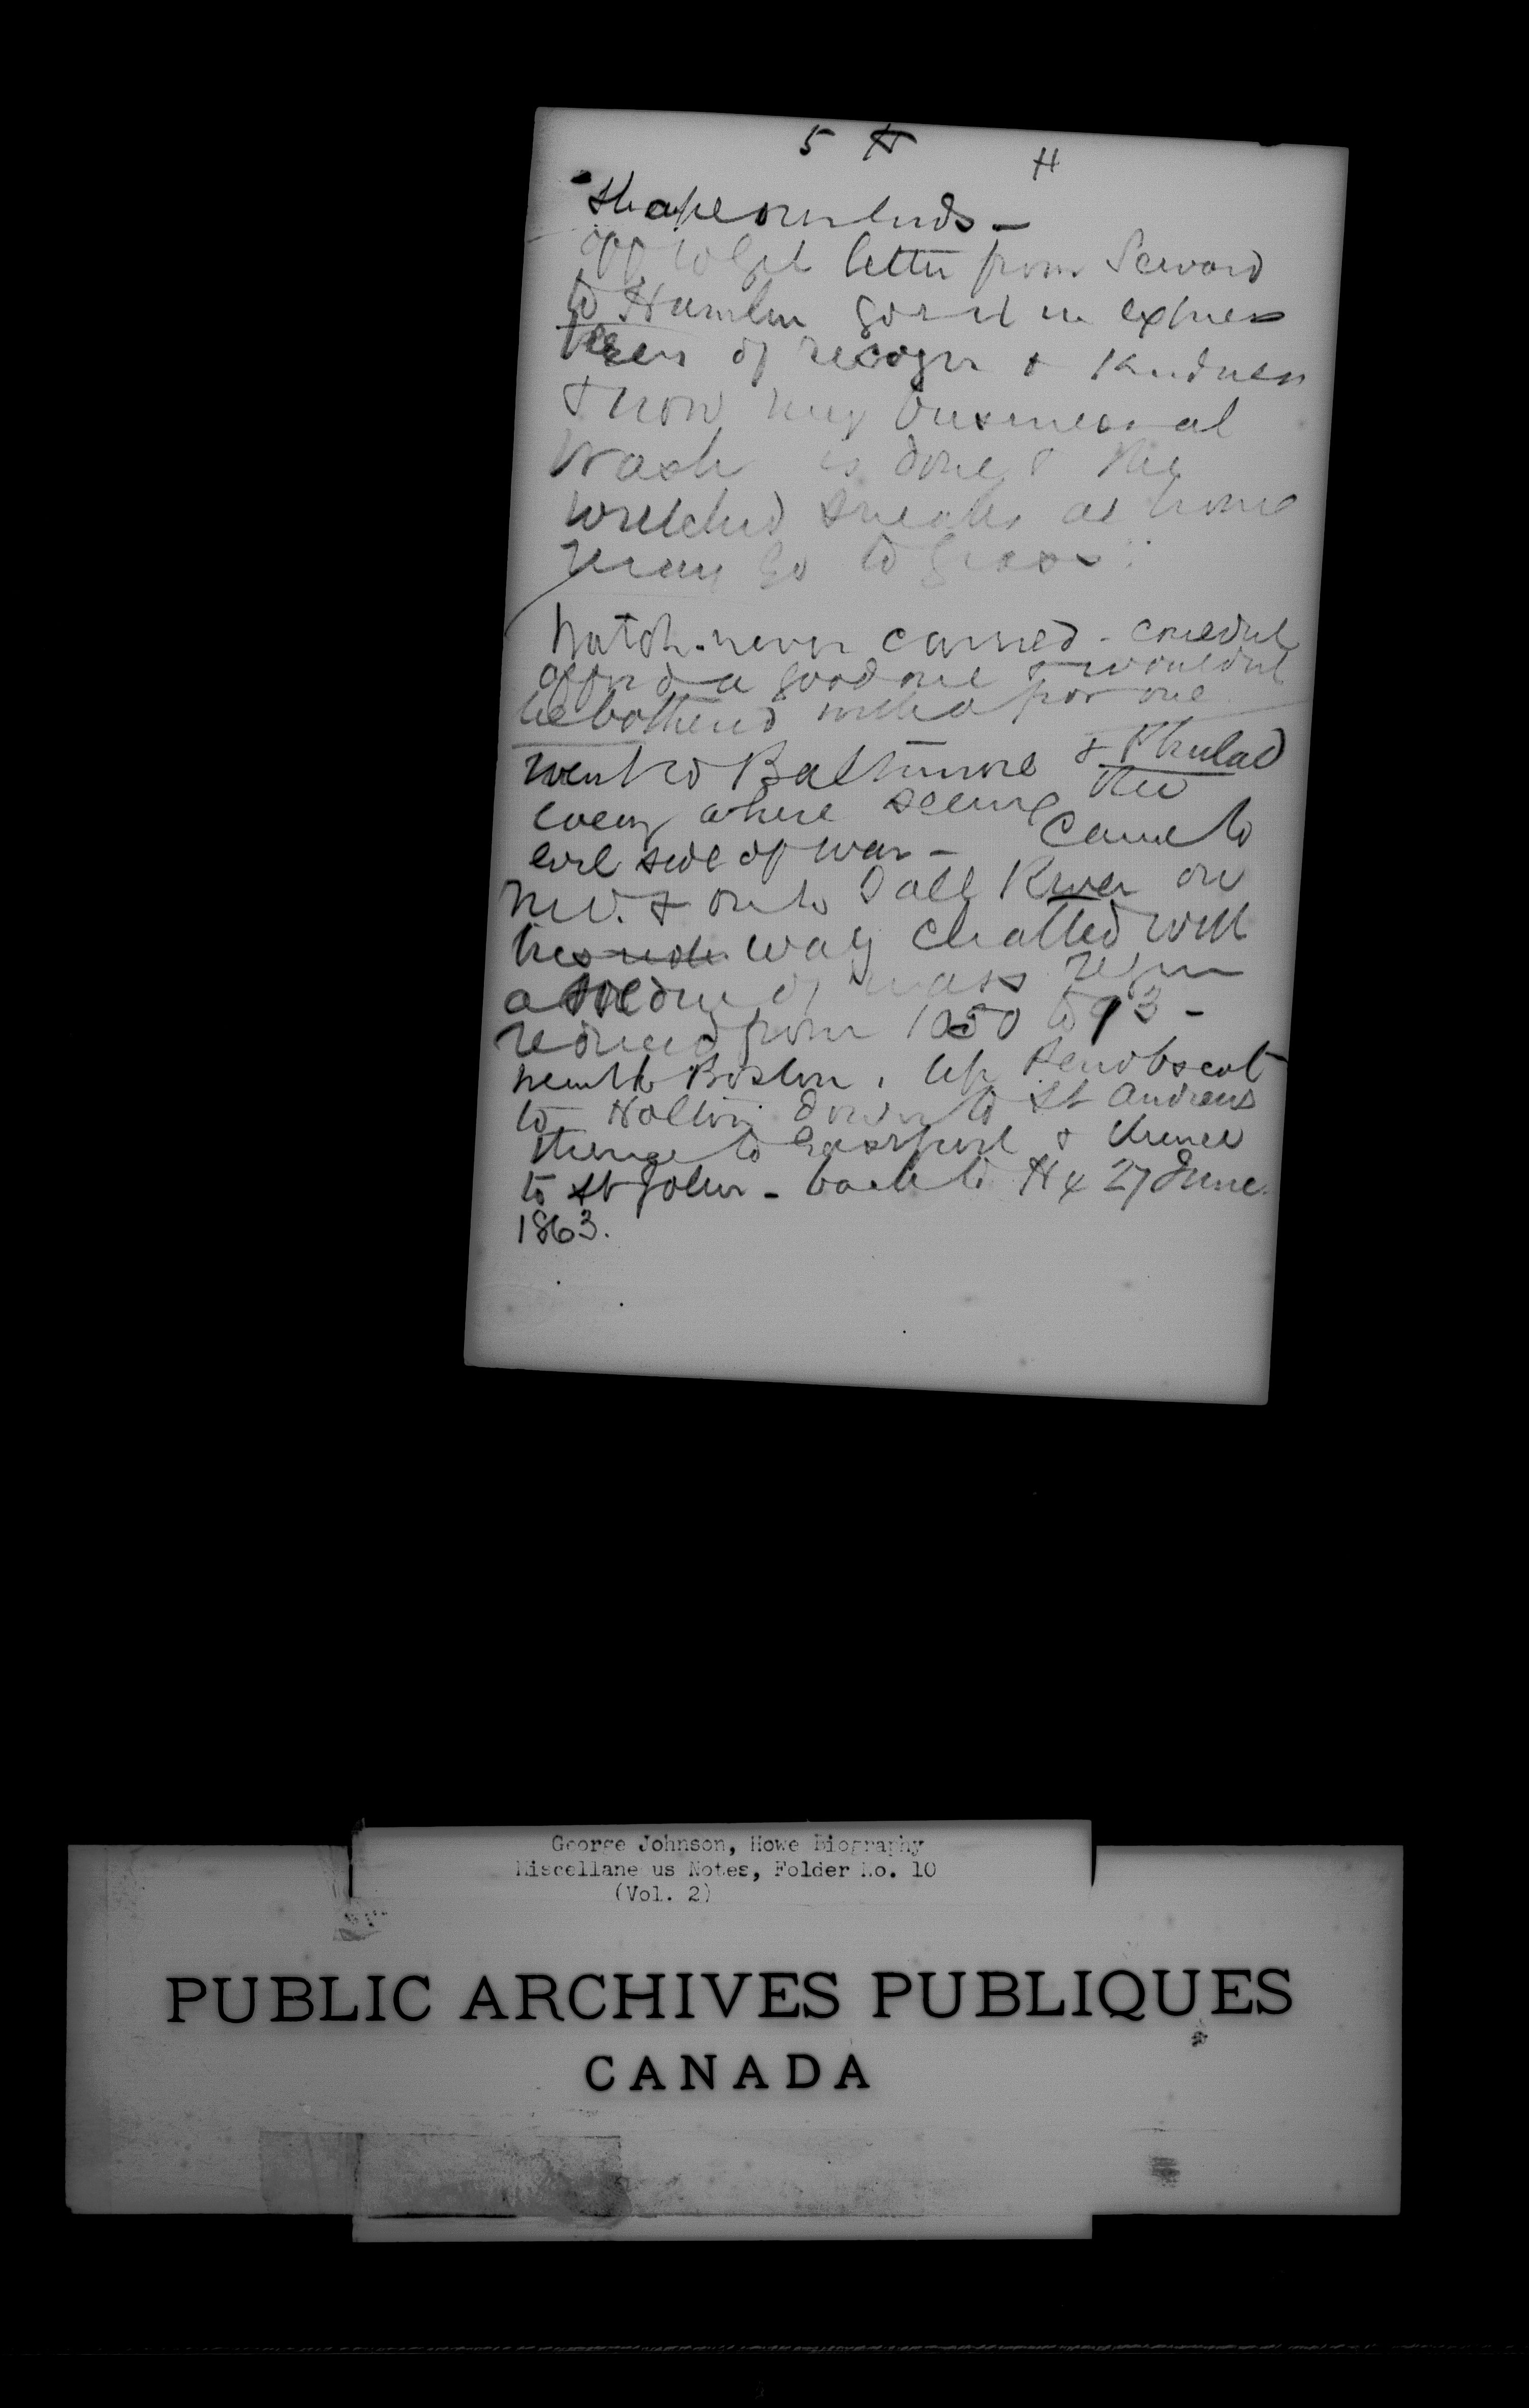 5 H H
shape our ends -
off to get letter from Seward
to Hamlin got it in express
of recogn & Kindness
& now my business at
Wash is done & the
wretched sneaks at home
may go to grass"
Watch - never carried - couldnt
afford a good one & wouldnt
be bothered with a poor one
went to Baltimore & Philad
every where seeing the
evil side of war - Came to
N.Y. & on to Fall River on
his way chatted with
a soldier of Mass regim
reduced from 1050 to 93 -
went to Boston, up Penobscot
to Holton down to St Andrews
thence to Eastport & thence
to St John - back to Hx 27 June
1863.
George Johnson, Howe Biography
Miscellaneous Notes, Folder No. 10
(Vol. 2)
PUBLIC ARCHIVES PUBLIQUES
CANADA